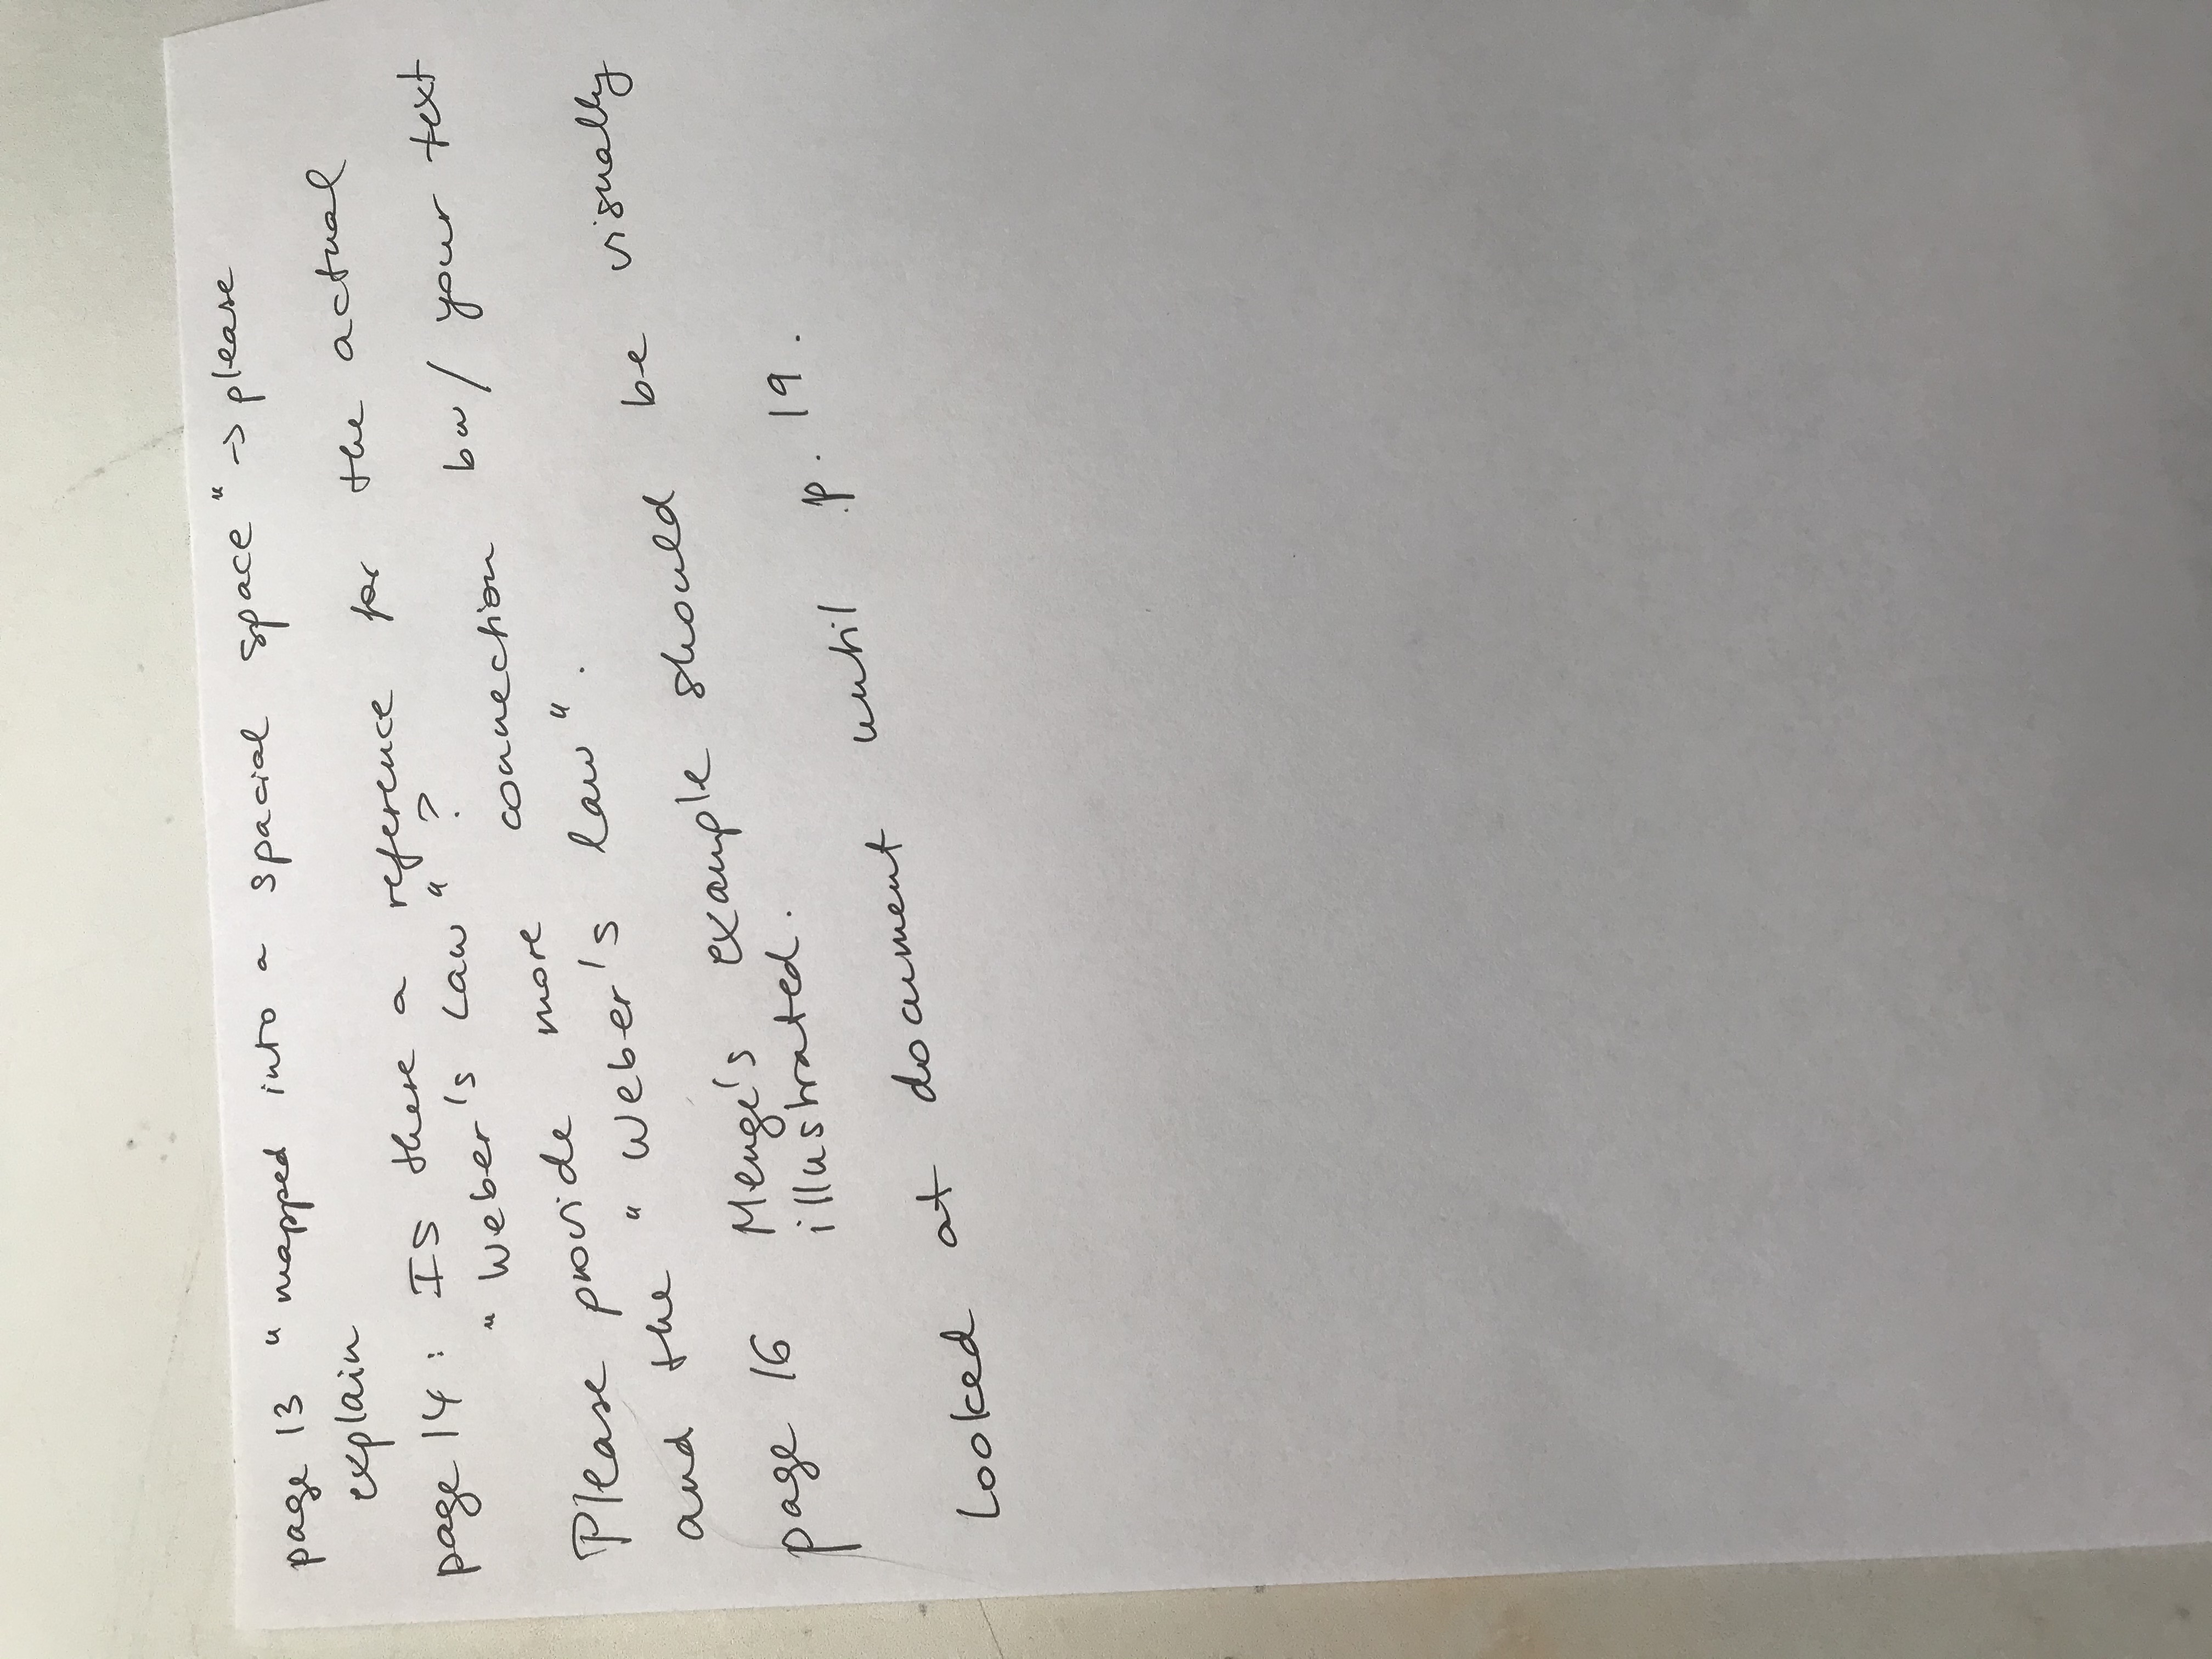 page 13 "mapped into a spacial space" -> please
explain
page 14: Is there a reference for the actual
"Weber's Law"?
Please provide more connection bw/ your text
and the "Weber's law".
page 16 Menge's example should be visually
illustrated.
Looked at document until p. 19.